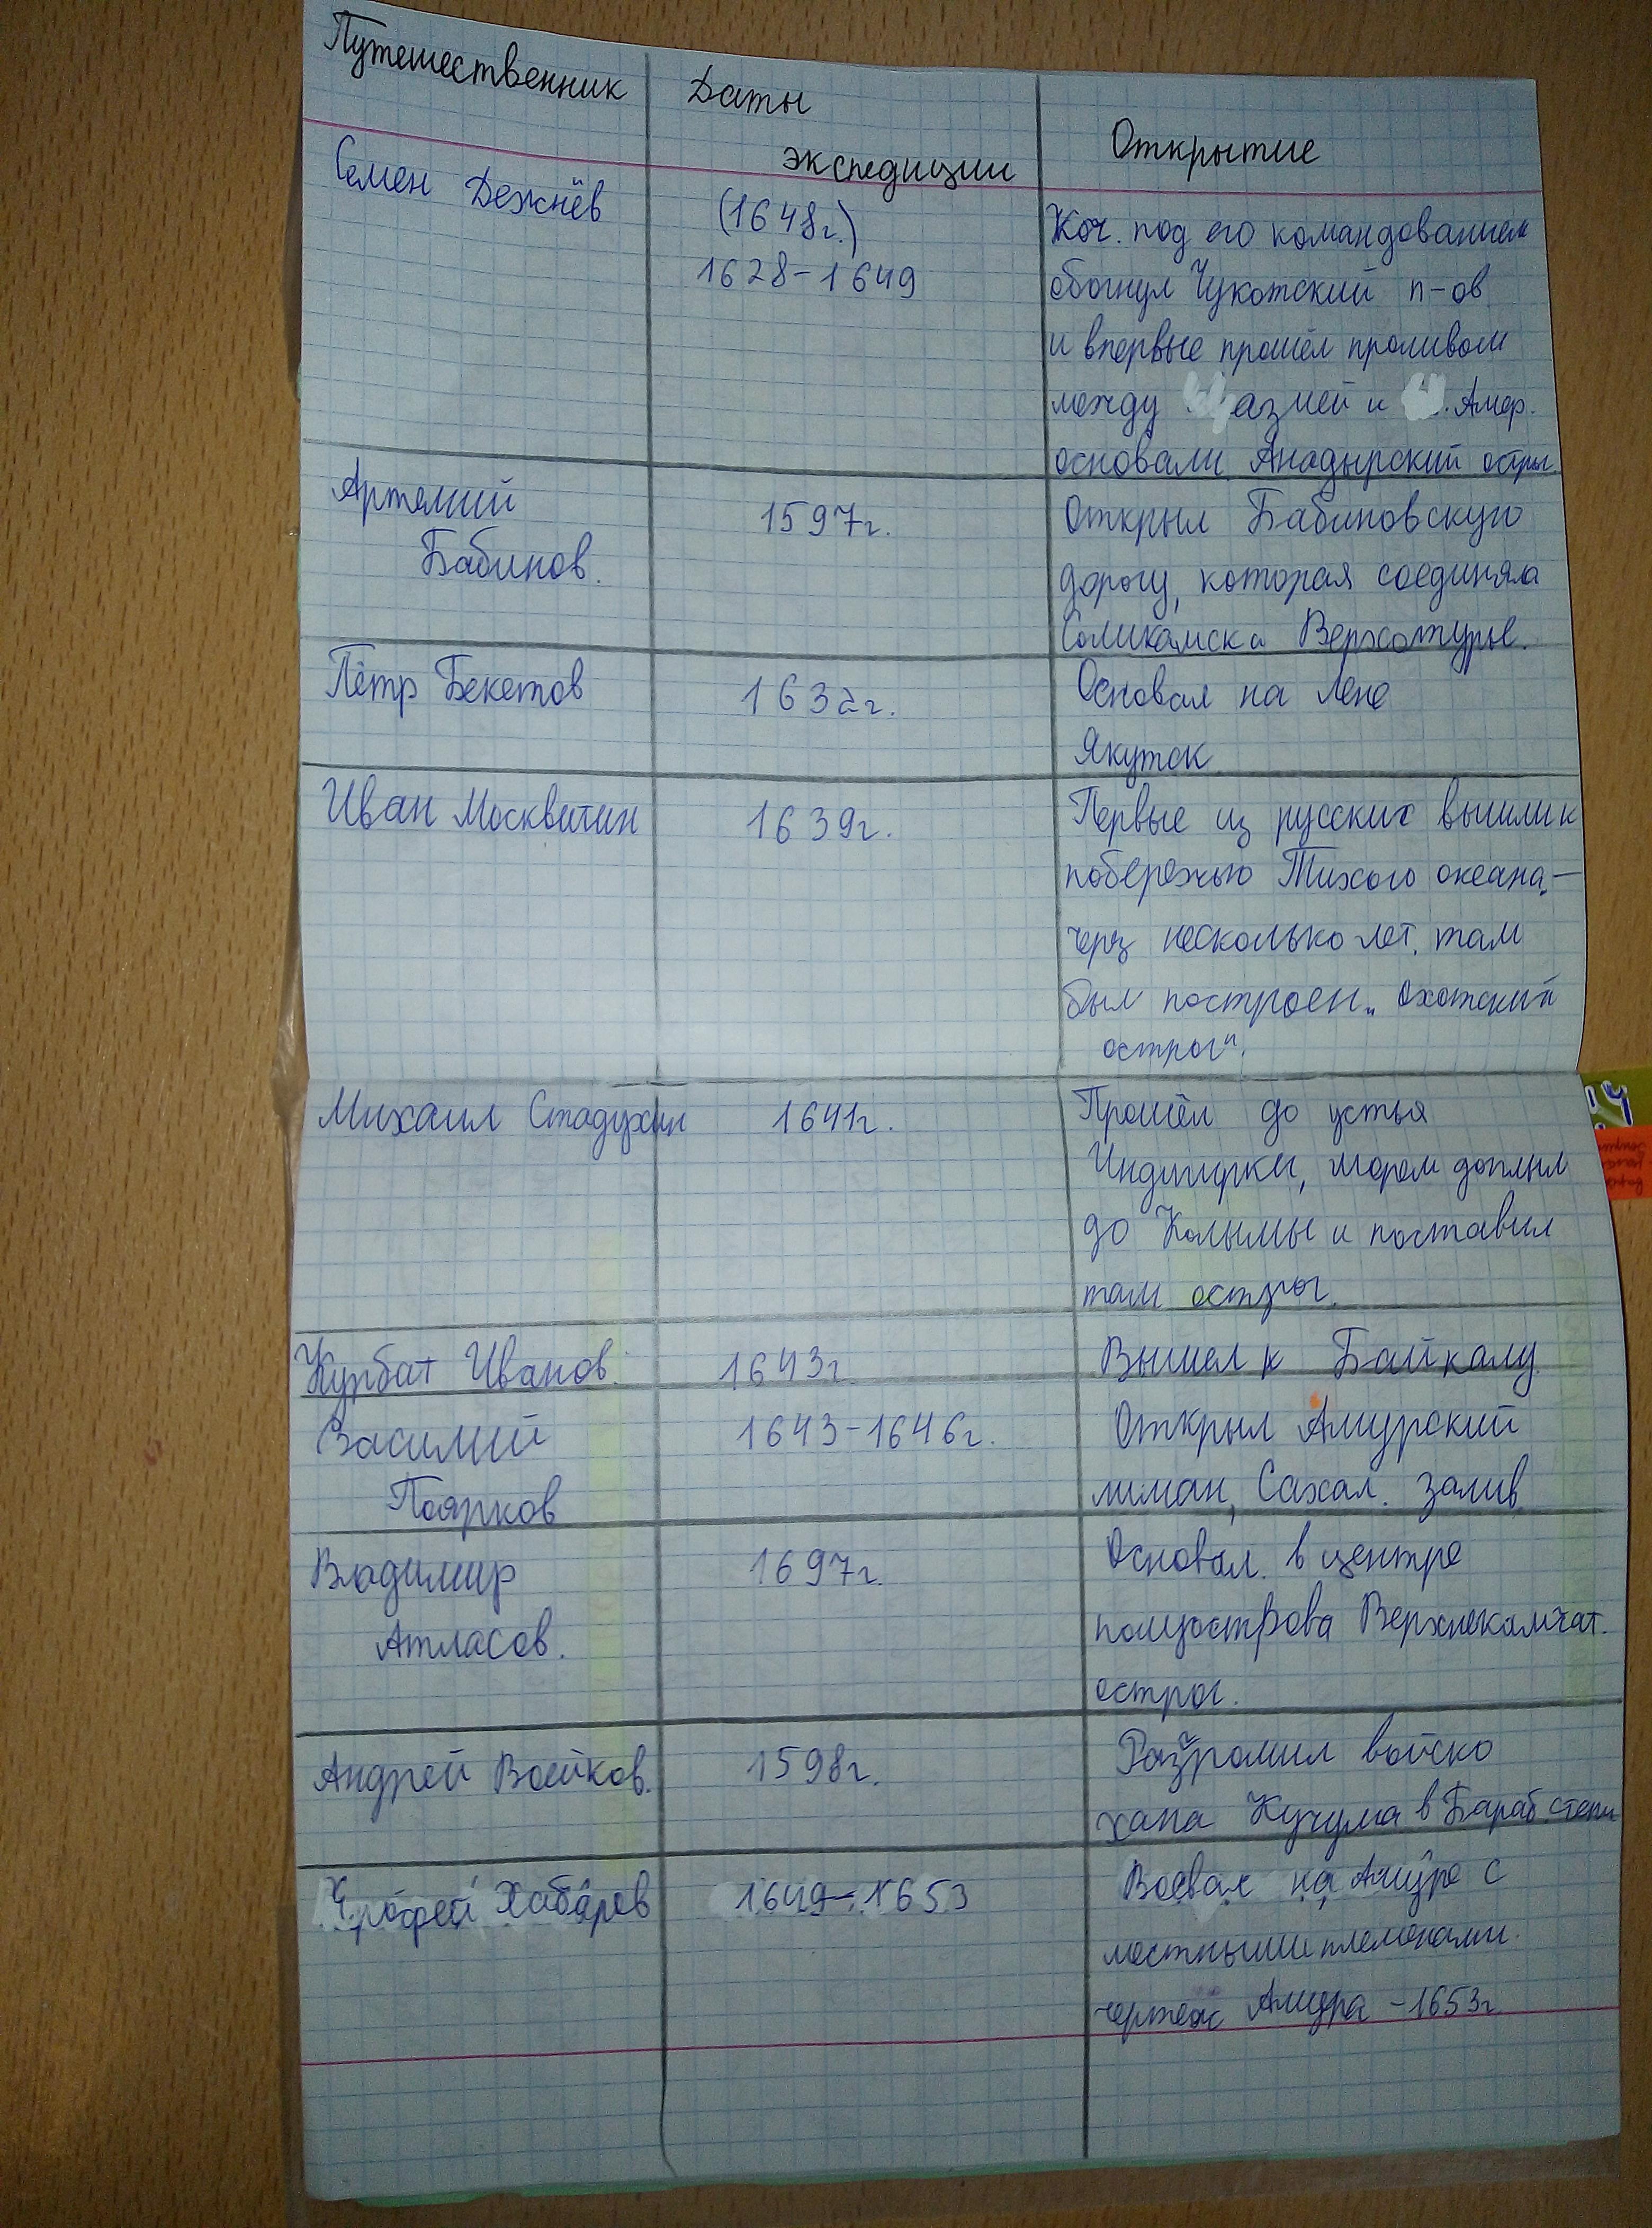 Путешественник
Даты
экспедиции
Открытие
Семен Дежнёв
(1648г.)
1628-1649
Коч. под его командованием
обогнул Чукотский п-ов
и впервые прошёл проливом
между азией и Амер.
основали Анадырский остр.
Артемий
Бабинов.
1597г.
Открыл Бабиновскую
дорогу, которая соединяла
Соликамск и Верхотурье.
Пётр Бекетов
1632г.
Основал на Лене
Якутск
Иван Москвитин
1639г.
Первые из русских вышли к
побережью Тихого океана,-
черз несколько лет. там
был построен „ охотский
острог".
Михаил Стадухин
1641г.
Прошёл до устья
Индигирки, морем доплыл
до Колымы и поставил
там острог.
Курбат Иванов.
1643г.
Вышел к Байкалу
Василий
Поярков
1643-1646г.
Открыл Амурский
лиман, Сахал. залив
Владимир
Атласов.
1697г.
Основал. в центре
полуострова Верхнекамчат.
острог.
Андрей Воейков.
1598г.
Разгромил войско
хана Кучума в Бараб. степи
Хабаров
1649-1653
Воевал на Амуре с
местными племенами.
чертеж Амура -1653г.